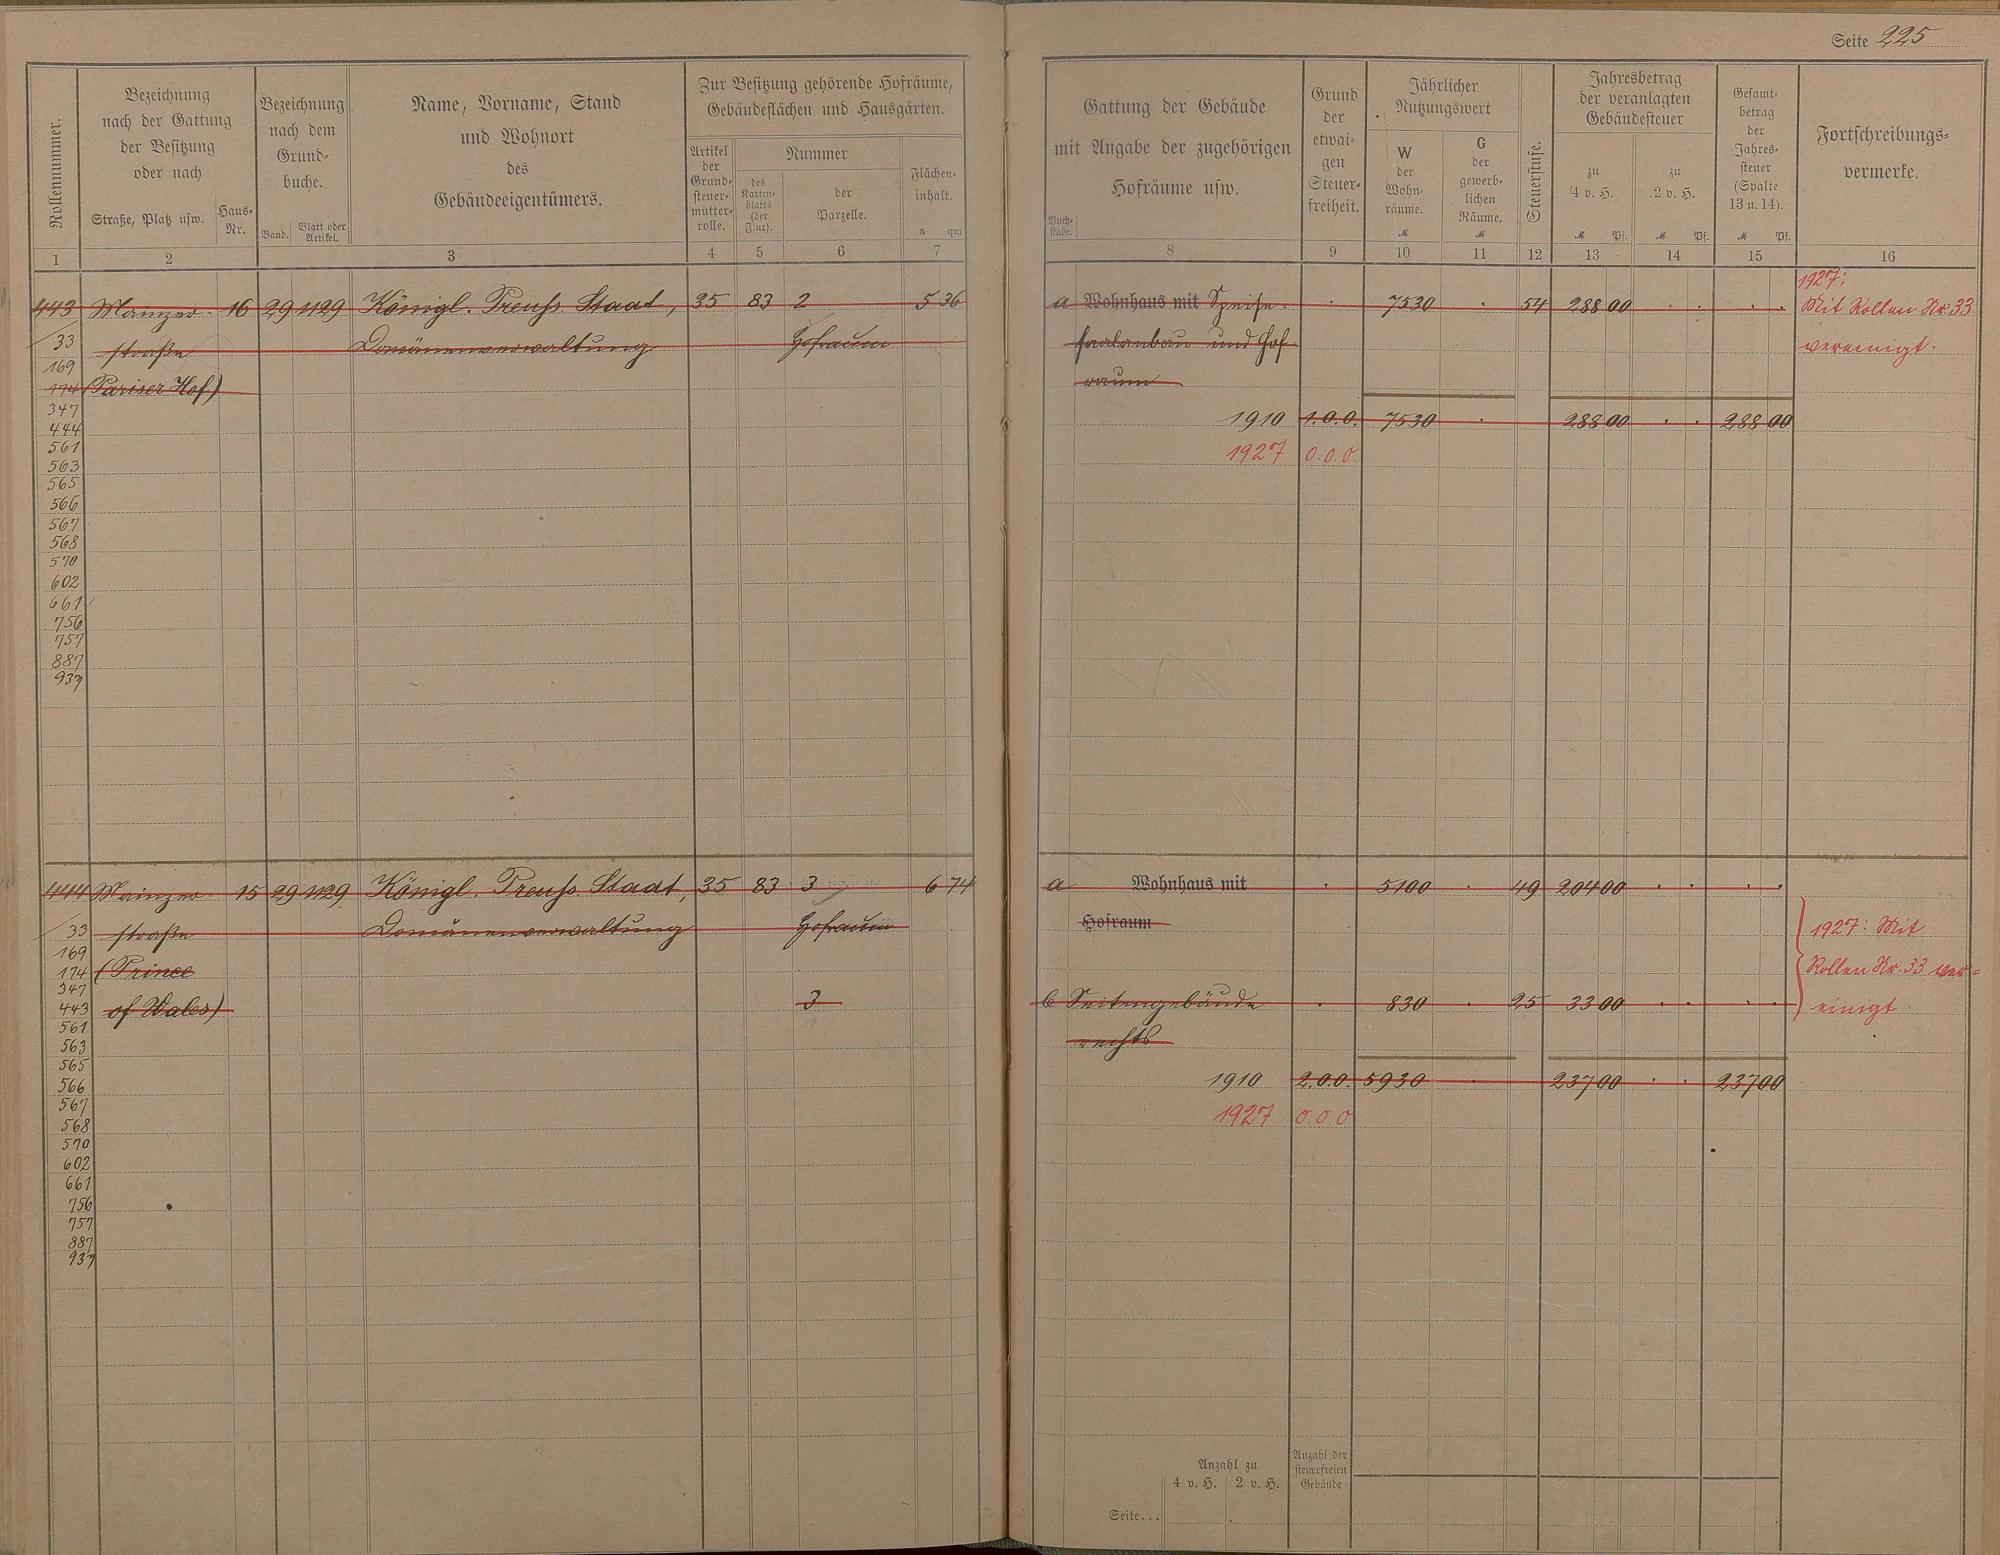 Seite 225
Rollennummer.
Bezeichnung
nach der Gattung
der Besitzung
oder nach
Straße, Platz usw.
Haus-
Nr.
Bezeichnung
nach dem
Grund-
buche.
Band.
Blatt oder
Artikel.
Name, Vorname, Stand
und Wohnort
des
Gebäudeeigentümers.
Zur Besitzung gehörende Hofräume,
Gebäudeflächen und Hausgärten.
Artikel
der
Grund-
steuer-
mutter-
rolle.
Nummer
des
Karten-
blatts
(der
Flur).
der
Parzelle.
Flächen-
inhalt.
a qm
Gattung der Gebäude
mit Angabe der zugehörigen
Hofräume usw.
Buch-
stabe.
Grund
der
etwai-
gen
Steuer-
freiheit.
Jährlicher
Nutzungswert
W
der
Wohn-
räume.
M
G
der
gewerb-
lichen
Räume.
M
Steuerstufe.
Jahresbetrag
der veranlagten
Gebäudesteuer
zu
4 v. H.
M Pf.
zu
2 v. H.
M Pf.
Gesamt-
betrag
der
Jahres-
steuer
(Spalte
13 u. 14).
M Pf.
Fortschreibungs-
vermerke.
1 2 3 4 5 6 7 8 9 10 11 12 13 14 15 16
443 Mainzer- 16 29 1129 Königl. Preuß. Staat, 35 83 2 5 36 a Wohnhaus mit Speise- 7530 54 288 00
1927:
Mit Rollen Nr. 33
33 straße Domänenverwaltung Hofraum saalanbau und Hof- vereinigt.
169
174 (Pariser Hof) raum
347
444 1910 1.0.0. 7530 288 00 288 00
561 1927 0.0.0.
563
565
566
567
568
570
602
661
756
757
887
937
444 Mainzer- 15 29 1129 Königl. Preuß. Staat, 35 83 3 6 74 a Wohnhaus mit 5100 49 204 00
33 straße Domänenverwaltung Hofraum Hofraum 1927: Mit
169
174 (Prince Rollen Nr. 33 ver-
347
443 of Wales) 3 b Seitengebäude 830 25 33 00 einigt.
561
563 rechts
565
566 1910 2.0.0. 5930 237 00 237 00
567 1927 0.0.0
568
570
602
661
756
757
887
937
Anzahl zu
4 v. H. 2 v. H.
Anzahl der
steuerfreien
Gebäude
Seite...